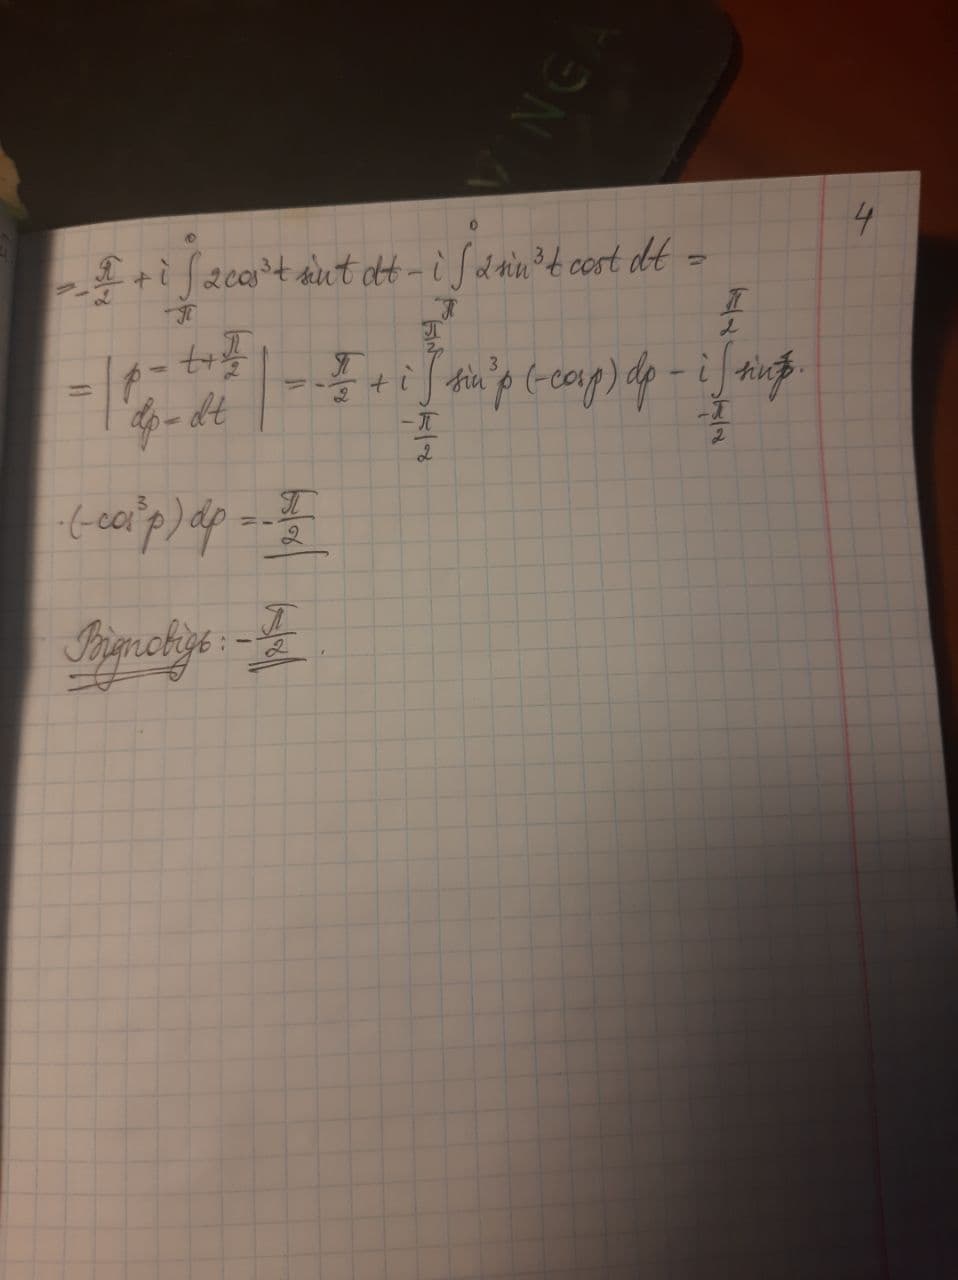 VINGA
4
= -π/2 + i ∫_{-π}^{0} 2cos³t sint dt - i ∫_{-π}^{0} 2sin³t cost dt =
= | p = t + π/2, dp = dt | = -π/2 + i ∫_{-π/2}^{π/2} sin³p (-cosp) dp - i ∫_{-π/2}^{π/2} sinp ·
· (-cos³p) dp = -π/2
Відповідь: -π/2 .